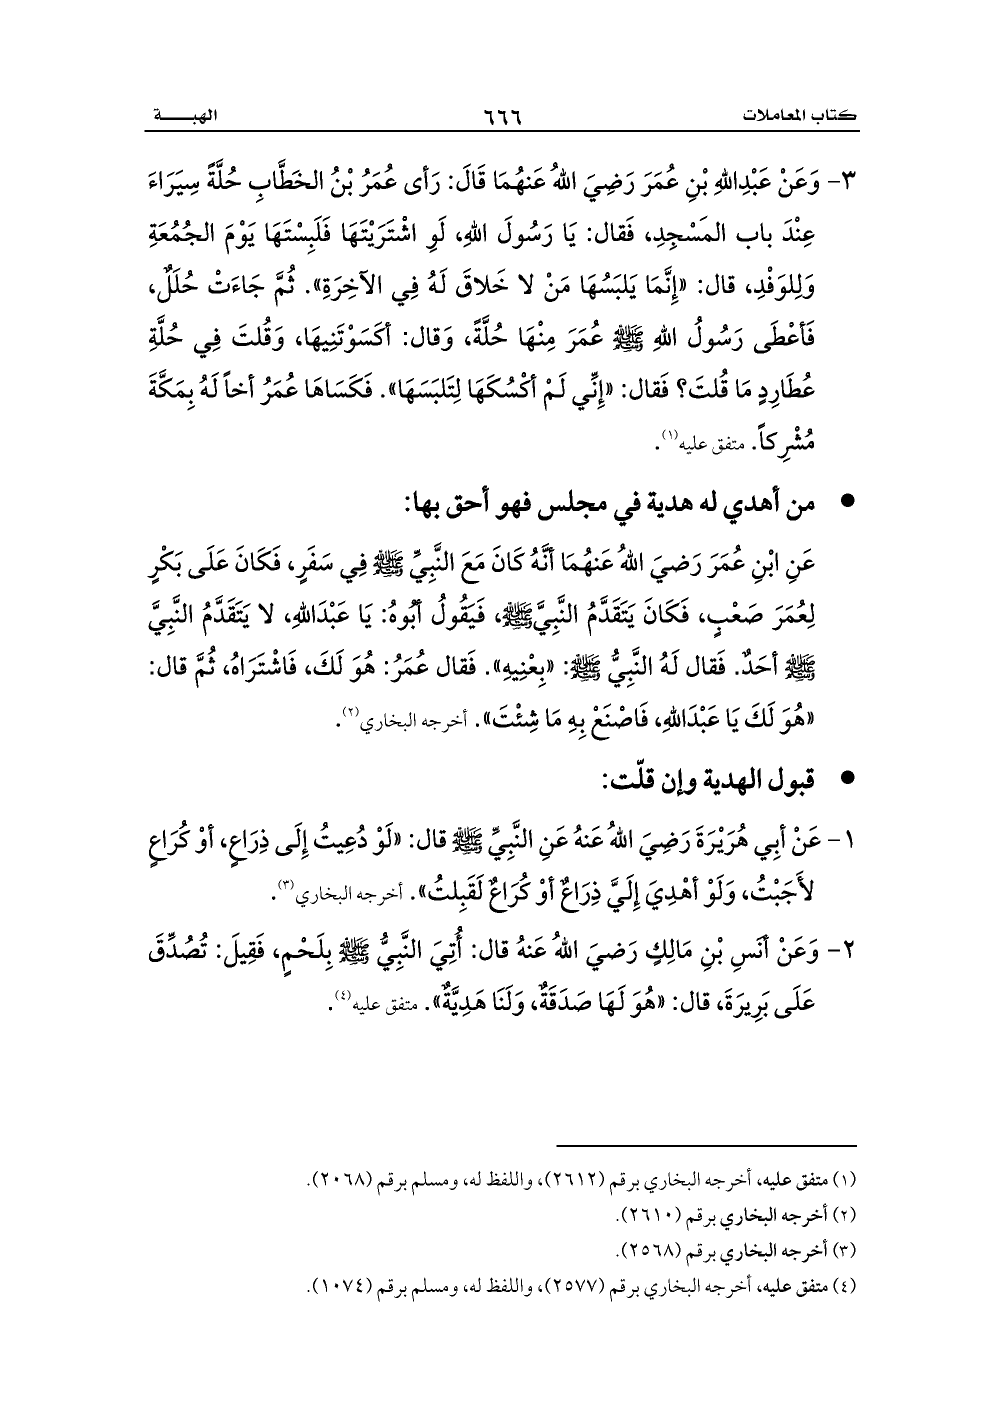 كتاب المعاملات ٦٦٦ الهبـــــة
٣- وَعَنْ عَبْدِاللهِ بْنِ عُمَرَ رَضِيَ اللهُ عَنهُمَا قَالَ: رَأى عُمَرُ بْنُ الخَطَّابِ حُلَّةً سِيَرَاءَ
عِنْدَ باب المَسْجِدِ، فَقال: يَا رَسُولَ اللهِ، لَوِ اشْتَرَيْتَهَا فَلَبِسْتَهَا يَوْمَ الجُمُعَةِ
وَلِلوَفْدِ، قال: «إنَّمَا يَلبَسُهَا مَنْ لا خَلاقَ لَهُ فِي الآخِرَةِ». ثُمَّ جَاءَتْ حُلَلٌ،
فَأعْطَى رَسُولُ اللهِ ﷺ عُمَرَ مِنْهَا حُلَّةً، وَقال: أكَسَوْتَنِيهَا، وَقُلتَ فِي حُلَّةِ
عُطَارِدٍ مَا قُلتَ؟ فَقال: «إنِّي لَمْ أكْسُكَهَا لِتَلبَسَهَا». فَكَسَاهَا عُمَرُ أخاً لَهُ بِمَكَّةَ
مُشْرِكاً. متفق عليه(١).
● من أهدي له هدية في مجلس فهو أحق بها:
عَنِ ابْنِ عُمَرَ رَضيَ اللهُ عَنهُمَا أنَّهُ كَانَ مَعَ النَّبِيِّ ﷺ فِي سَفَرٍ، فَكَانَ عَلَى بَكْرٍ
لِعُمَرَ صَعْبٍ، فَكَانَ يَتَقَدَّمُ النَّبِيَّ ﷺ، فَيَقُولُ أبُوهُ: يَا عَبْدَاللهِ، لا يَتَقَدَّمُ النَّبِيَّ
ﷺ أحَدٌ. فَقال لَهُ النَّبِيُّ ﷺ: «بِعْنِيهِ». فَقال عُمَرُ: هُوَ لَكَ، فَاشْتَرَاهُ، ثُمَّ قال:
«هُوَ لَكَ يَا عَبْدَاللهِ، فَاصْنَعْ بِهِ مَا شِئْتَ». أخرجه البخاري(٢).
● قبول الهدية وإن قلّت:
١- عَنْ أبِي هُرَيْرَةَ رَضيَ اللهُ عَنهُ عَنِ النَّبِيِّ ﷺ قال: «لَوْ دُعِيتُ إلَى ذِرَاعٍ، أوْ كُرَاعٍ
لأَجَبْتُ، وَلَوْ أهْدِيَ إلَيَّ ذِرَاعٌ أوْ كُرَاعٌ لَقَبِلتُ». أخرجه البخاري(٣).
٢- وَعَنْ أنَسِ بْنِ مَالِكٍ رَضيَ اللهُ عَنهُ قال: أُتِيَ النَّبِيُّ ﷺ بِلَحْمٍ، فَقِيلَ: تُصُدِّقَ
عَلَى بَرِيرَةَ، قال: «هُوَ لَهَا صَدَقَةٌ، وَلَنَا هَدِيَّةٌ». متفق عليه(٤).
(١) متفق عليه، أخرجه البخاري برقم (٢٦١٢)، واللفظ له، ومسلم برقم (٢٠٦٨).
(٢) أخرجه البخاري برقم (٢٦١٠).
(٣) أخرجه البخاري برقم (٢٥٦٨).
(٤) متفق عليه، أخرجه البخاري برقم (٢٥٧٧)، واللفظ له، ومسلم برقم (١٠٧٤).